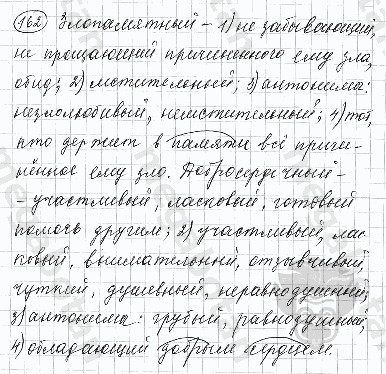 162 Злопамятный – 1) не забывающий,
не прощающий причиненного ему зла,
обид; 2) мстительный; 3) антонима:
незлолюбивый, немстительный; 4) тот,
кто держит в памяти всё причи-
нённое ему зло. Добросердечный –
- участливый, ласковый, готовый
помочь другим; 2) участливый, лас-
ковый, внимательный, отзывчивый,
чуткий, душевный, неравнодушный;
3) антонима: грубый, равнодушный;
4) обладающий добрым сердцем.